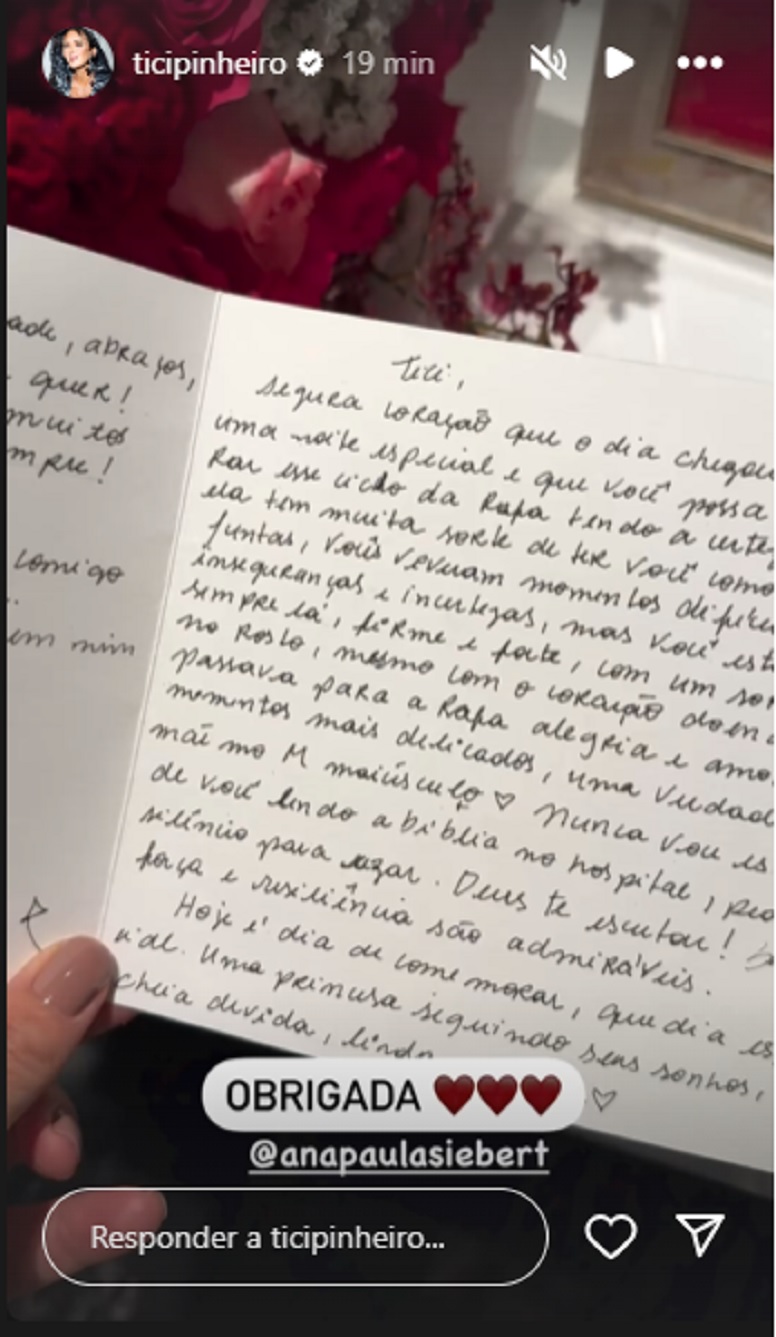 ticipinheiro 19 min
ade, abraços,
quer!
muitos
mpre!
comigo
..
em mim
Tici,
segura coração que o dia chegou
uma noite especial e que você possa
rar esse ciclo da Rafa tendo a certe
ela tem muita sorte de ter você como
juntas, vocês viveram momentos difíce
inseguranças e incertezas, mas você est
sempre lá, firme e forte, com um sor
no rosto, mesmo com o coração doen
passava para a Rafa alegria e amo
momentos mais delicados, uma verdad
mãe no M maiúsculo ♡ Nunca vou es
de você lendo a bíblia no hospital, pe
silêncio para rezar. Deus te escutou!
força e resiliência são admiráveis.
Hoje é dia de comemorar, que dia es
cial. Uma princesa seguindo seus sonhos,
cheia de vida, linda
♡
OBRIGADA ♥♥♥
@anapaulasiebert
Responder a ticipinheiro...